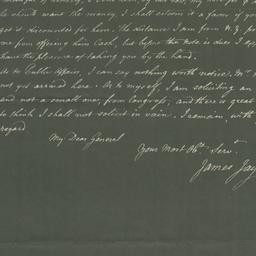 he shou'd want the money, I shall esteem it a favor if you
get it discounted for him. The distance I am from N. Y. pre
me from offering him Cash, but before the note is due I hope
have the pleasure of taking you by the hand.
As to Public Affairs, I can say nothing worth notice. Mr.
not yet arrived here. As to myself, I am soliciting an
and not a small one, from Congress, and there is great
to think I shall not solicit in vain. I remain, with
regard
My Dear General
Your Most Obt. Servt.
James Jay